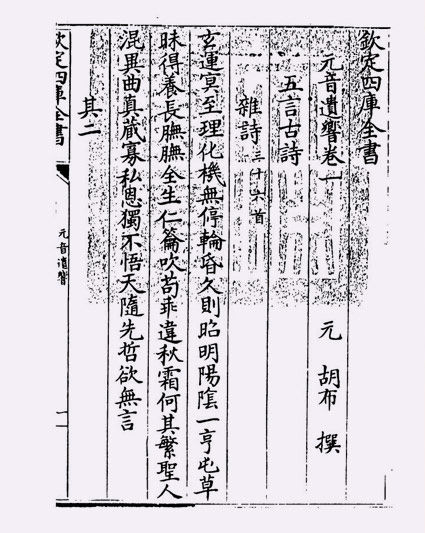 欽定四庫全書
元音遺響卷一
元　胡布　撰
五言古詩
雜詩三十六首
玄運冥至理化機無停輪昏久則昭明陽陰一亨屯草
昧得養長膴膴全生仁籥吹苟乖違秋霜何其繁聖人
混異曲真蔵寡私恩獨不悟天隨先哲欲無言
其二
欽定四庫全書
元音遺響
一